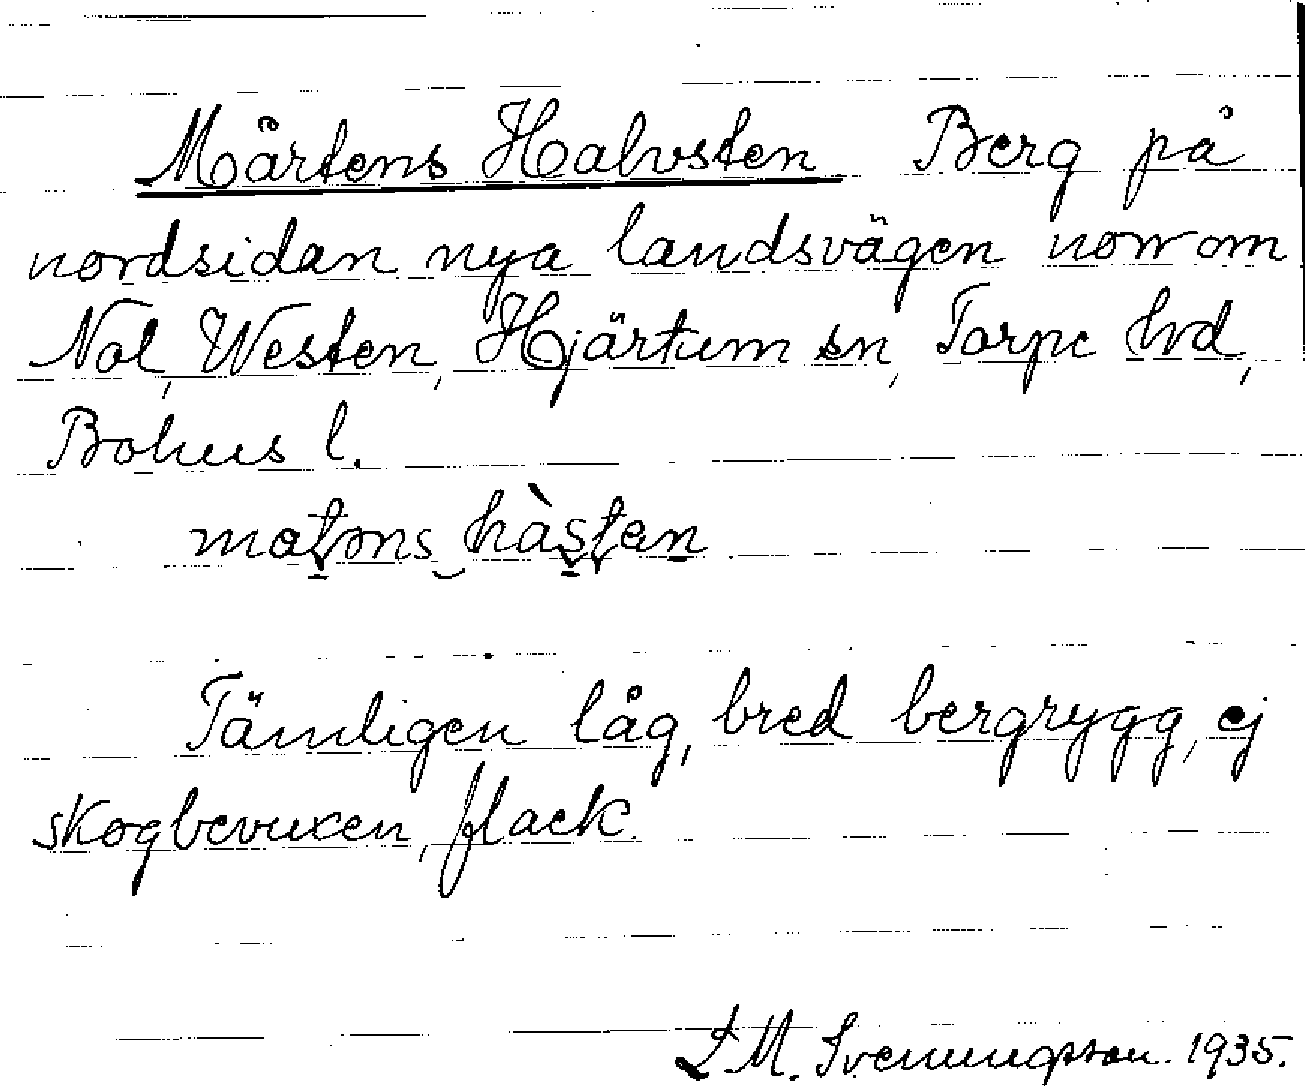 Mårtens Halvsten Berg på
nordsidan nya landsvägen norr om
Nol, Westen, Hjärtum sn, Torpe hd,
Bohus l.
Tämligen låg, bred bergrygg, ej
skogbevuxen, flack.
M. Svenungsson. 1935.